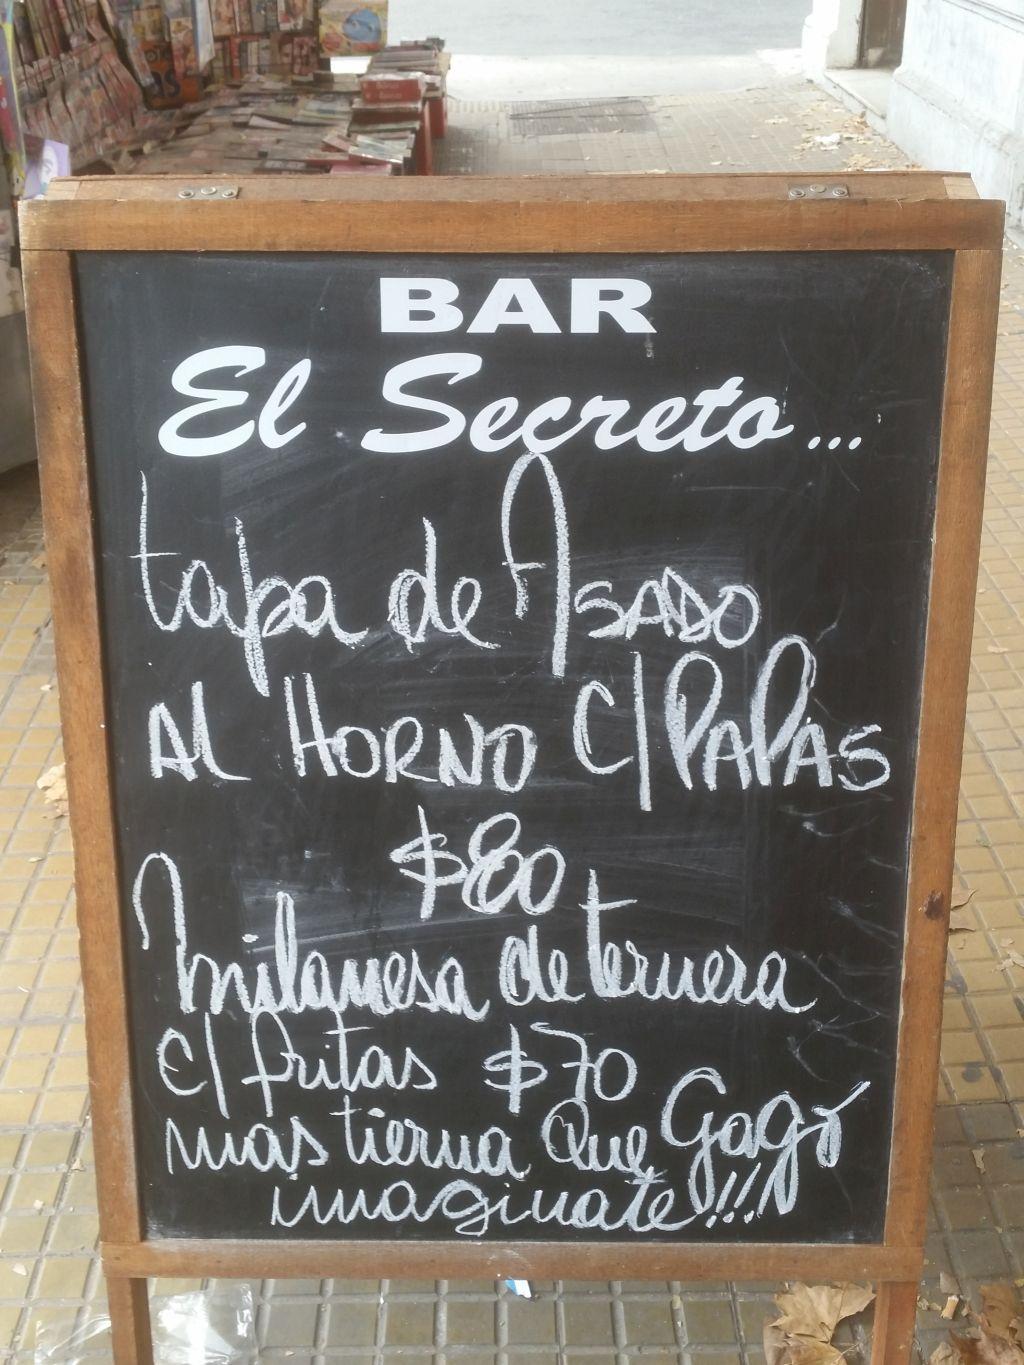 BAR
El Secreto...
tapa de Asado
AL HORNO C/PAPAS
$80
Milanesa de ternera
c/fritas $70
mas tierna Que Gagó
imaginate!!!